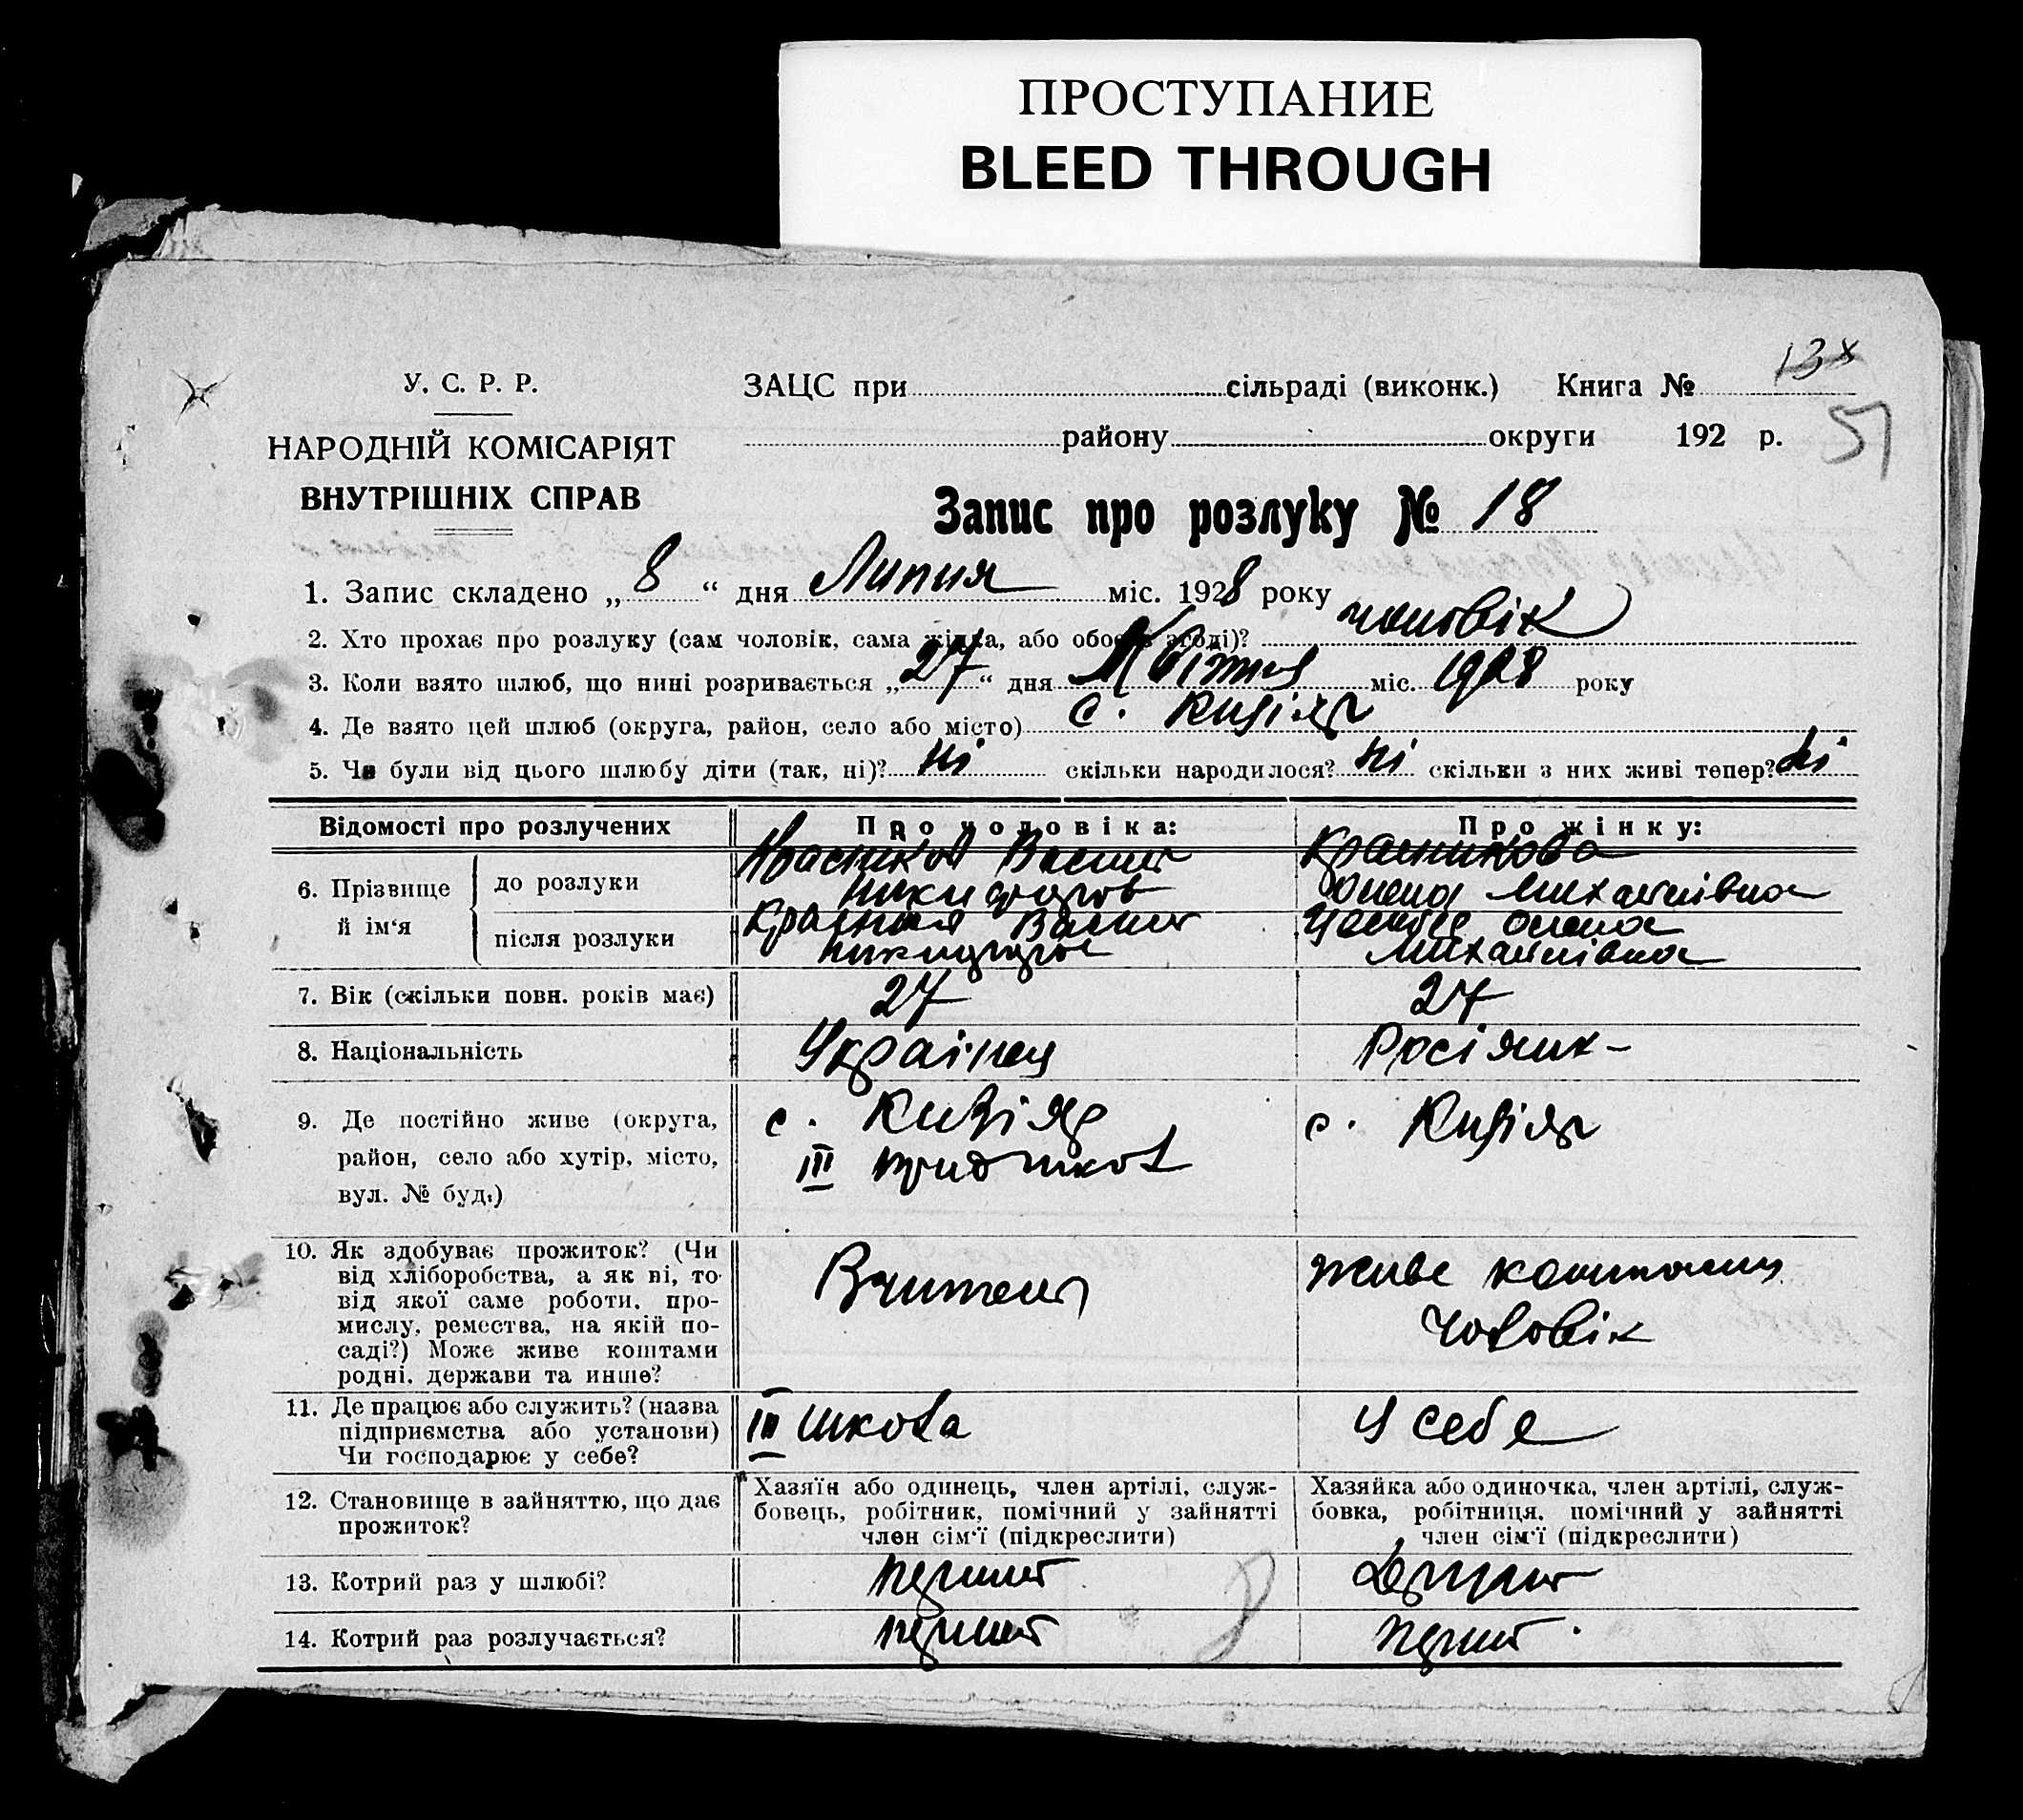 ПРОСТУПАНИЕ
BLEED THROUGH
13
51
У. С. Р. Р.
НАРОДНІЙ КОМІСАРІЯТ
ВНУТРІШНІХ СПРАВ
ЗАЦС при сільраді (виконк.) Книга №
району округи 192 р.
Запис про розлуку № 18
1. Запис складено „8“ дня Липня міс. 1928 року
2. Хто прохає про розлуку (сам чоловік, сама жінка, або обоє в згоді)? чоловік
3. Коли взято шлюб, що нині розривається „27“ дня Квітня міс. 1928 року
4. Де взято цей шлюб (округа, район, село або місто) с. Кизіяр
5. Чи були від цього шлюбу діти (так, ні)? ні скільки народилося? ні скільки з них живі тепер? ні
Відомості про розлучених
Про чоловіка:
Про жінку:
6. Прізвище й ім'я
до розлуки
Василь
Никифоров
Красникова
Олена Михайлівна
після розлуки
Василь
Олена
Михайлівна
7. Вік (скільки повн. років має)
27
27
8. Національність
Українец
Росіянк-
9. Де постійно живе (округа,
район, село або хутір, місто,
вул. № буд.)
с. Кизіяр
III
с. Кизіяр
10. Як здобуває прожиток? (Чи
від хліборобства, а як ні, то
від якої саме роботи, про-
мислу, ремества, на якій по-
саді?) Може живе коштами
родні, держави та инше?
Вчитель
живе коштами
чоловік
11. Де працює або служить? (назва
підприємства або установи)
Чи господарює у себе?
III школа
У себе
12. Становище в зайняттю, що дає
прожиток?
Хазяїн або одинець, член артілі, служ-
бовець, робітник, помічний у зайнятті
член сім'ї (підкреслити)
Хазяйка або одиночка, член артілі, служ-
бовка, робітниця, помічний у зайнятті
член сім'ї (підкреслити)
13. Котрий раз у шлюбі?
перший
Другий
14. Котрий раз розлучається?
перший
перший